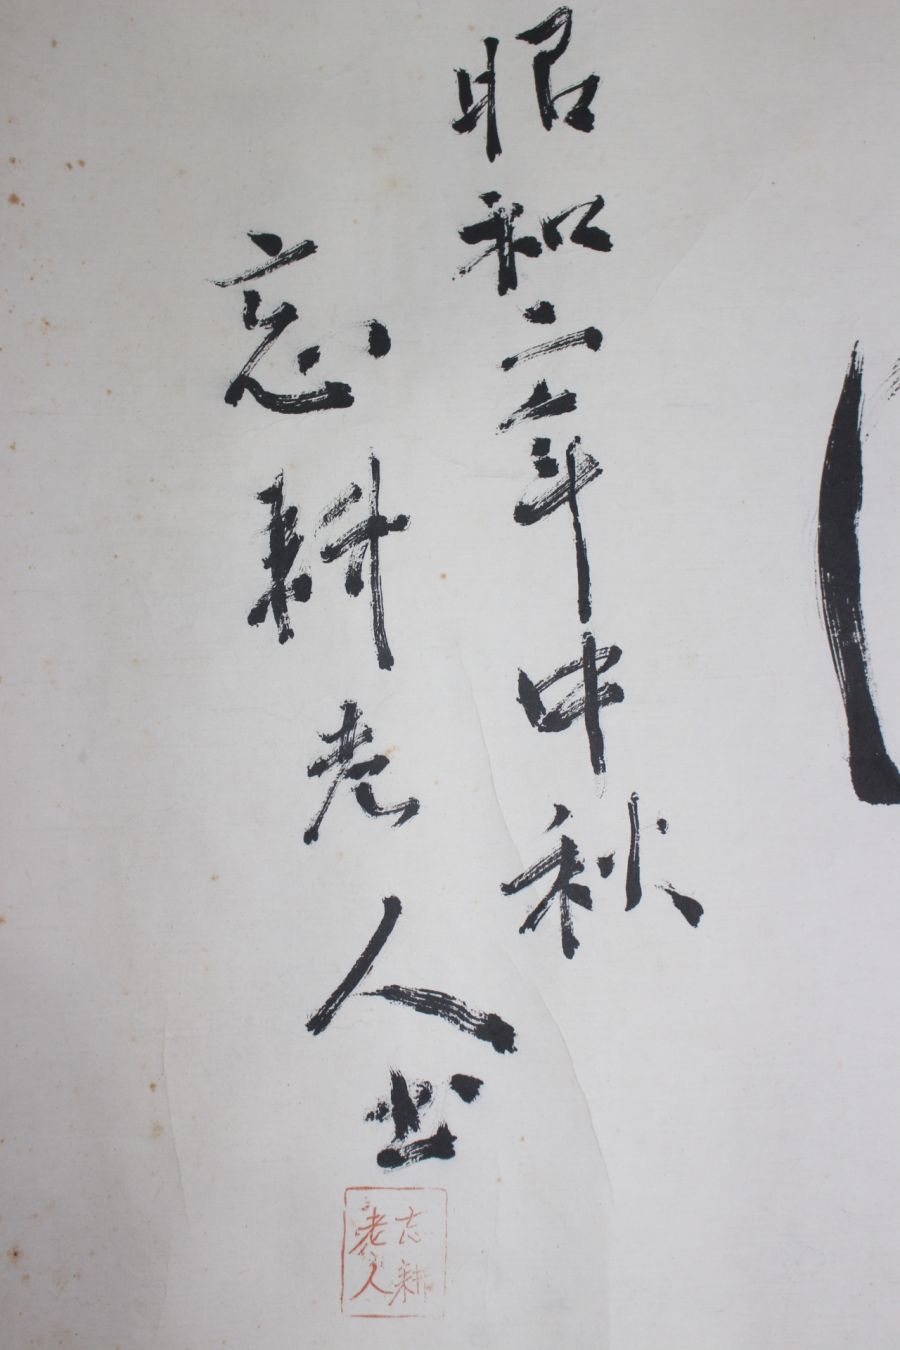 昭和二年中秋
忘耕老人书
忘耕
老人